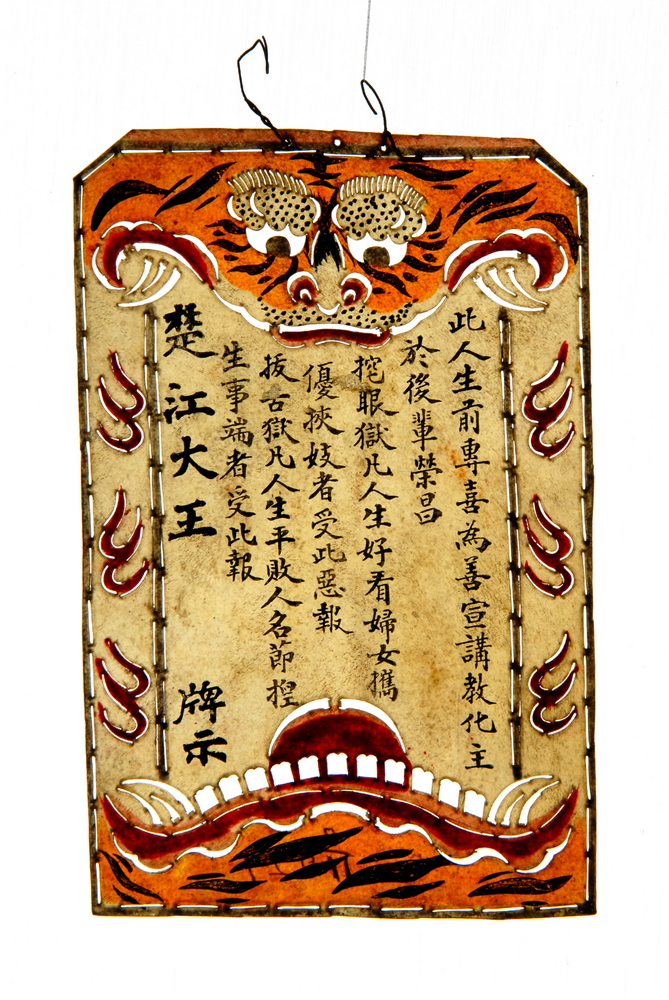 此人生前專喜為善宣講教化主
於後輩榮昌
挖眼獄凡人生好看婦女攜
優挾妓者受此惡報
拔舌獄凡人生平敗人名節揑
生事端者受此報
楚江大王 牌示